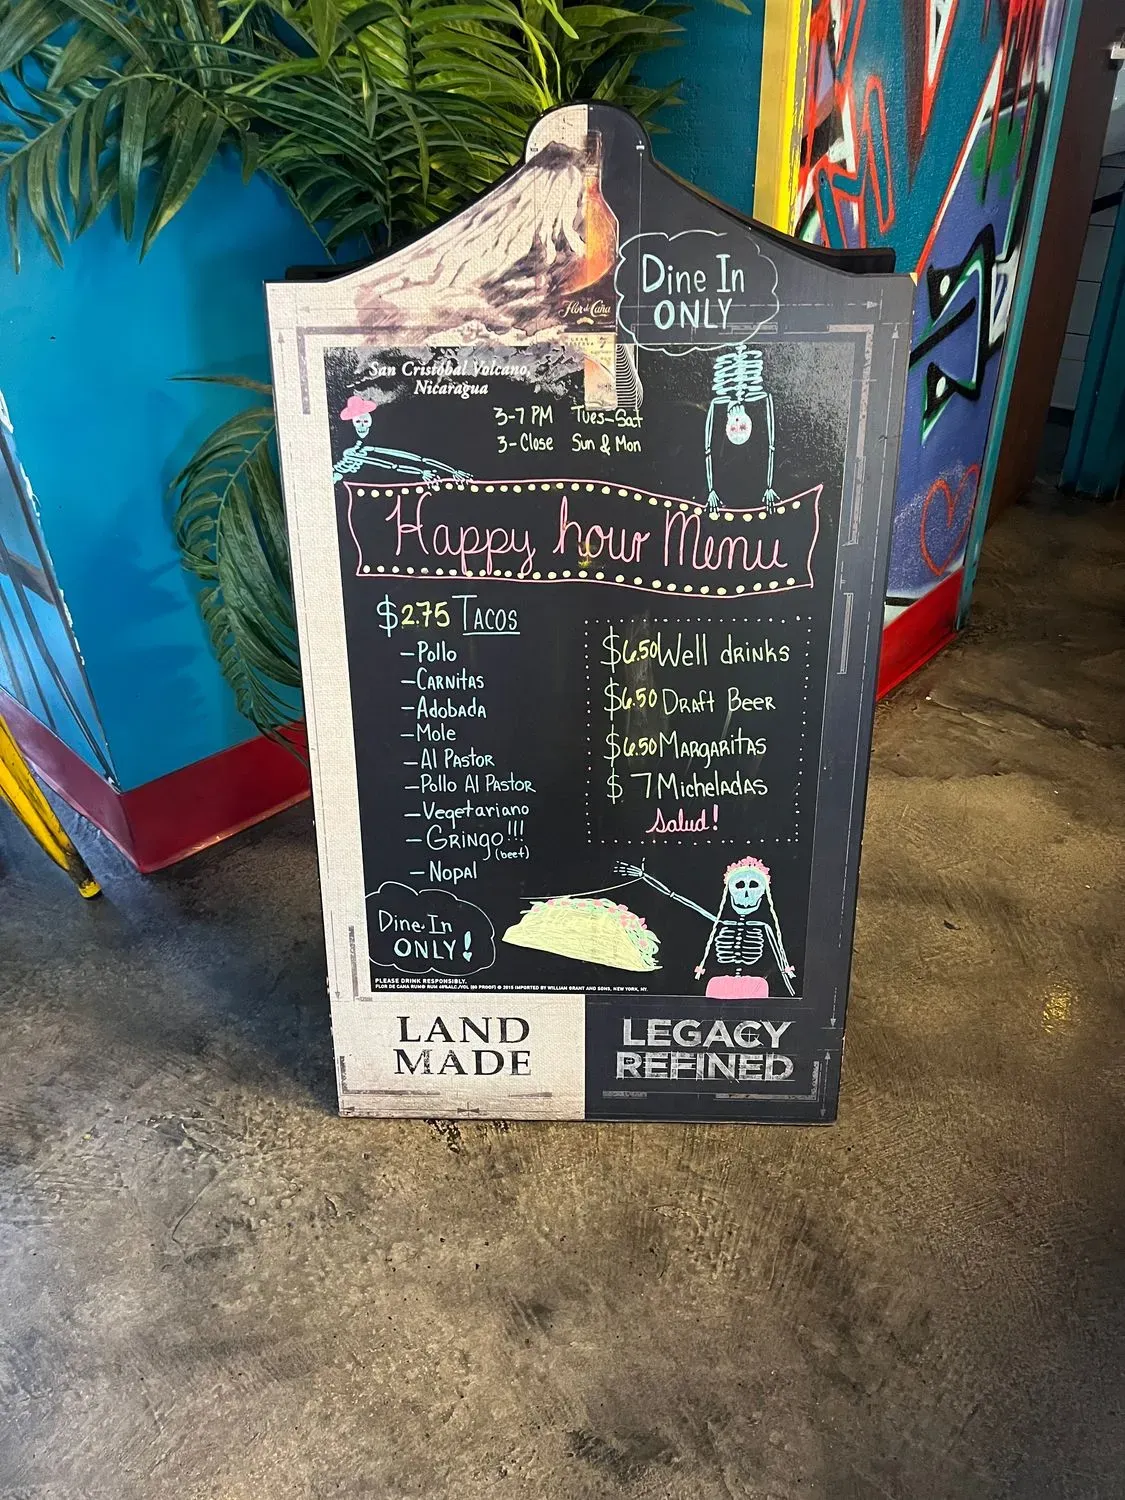 Dine In
ONLY
Flor de Caña
San Cristóbal Volcano,
Nicaragua
3-7 PM Tues-Sat
3-Close Sun & Mon
Happy hour Menu
$2.75 TACOS
-Pollo
-CARNITAS
-Adobada
-Mole
-Al PASTOR
-Pollo Al PASTOR
-Vegetariano
-GRINGO!!!
(beef)
-Nopal
$6.50 Well dRINKS
$6.50 DRAFT BEER
$6.50 MARGARITAS
$7 Micheladas
Salud!
Dine In
ONLY!
PLEASE DRINK RESPONSIBLY.
FLOR DE CAÑA RUM® RUM 40%ALC./VOL (80 PROOF) © 2015 IMPORTED BY WILLIAM GRANT AND SONS, NEW YORK, NY.
LAND
MADE
LEGACY
REFINED